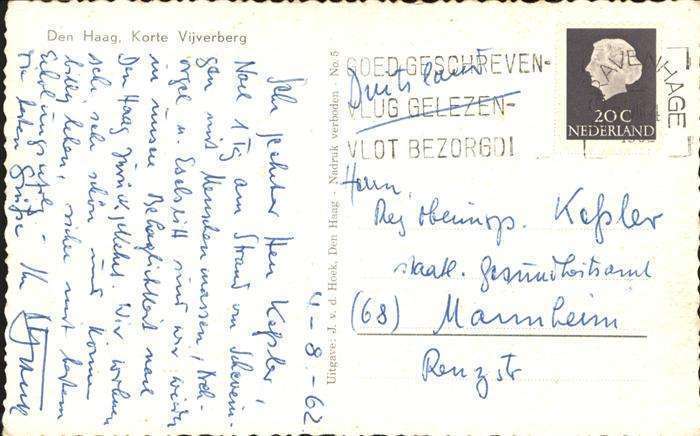 Den Haag, Korte Vijverberg
4-8.-62
Sehr geehrter Herr Keßler!
Nach 1 Tg am Strand von Schevenin-
gen mit Menschenmassen, Dreh-
orgel u. Eselsritt sind wir wieder
in unsere Behaglichkeit nach
Den Haag zurückgekehrt. Wir wohnen
sehr schön und können
billig leben,
Die besten Grüße Ihr
Uitgave: J. v. d. Hoek, Den Haag - Nadruk verboden - No. 5
GOED GESCHREVEN-
VLUG GELEZEN-
VLOT BEZORGD!
Deutschland
20 C
NEDERLAND
Herrn
Reg. oberinsp. Keßler
staatl. Gesundheitsamt
(68) Mannheim
Renzstr